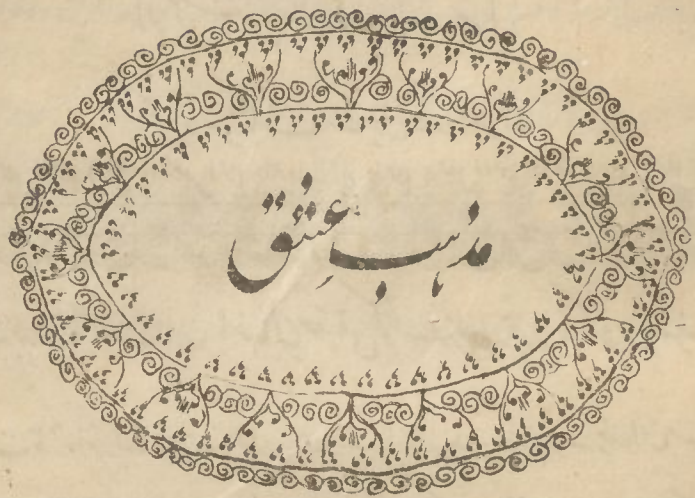 مذہبِ عشق